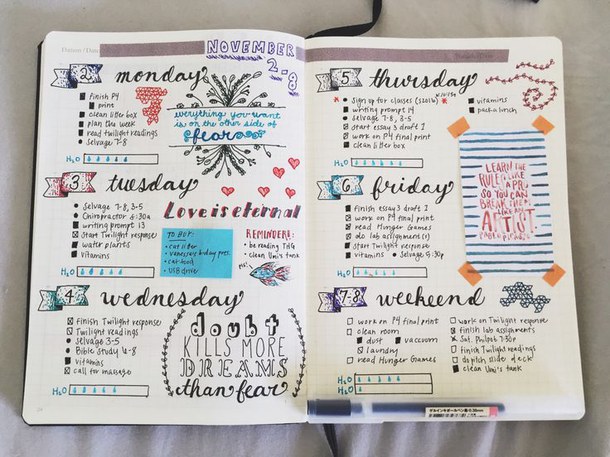 NOVEMBER
2-8
2 monday
finish P4
print
clean litter box
plan the week
read twilight readings
Selvage 7-8
H₂O
everything you want
is on the other side of
fear
3 tuesday
Selvage 7-8, 3-5
Chiropractor 6:30a
writing prompt 13
Start Twilight response
water plants
vitamins
H₂O
Love is eternal
TO BUY:
cat litter
vanessa's bday pres.
cat food
USB drive
REMINDERS:
be reading THG
clean Umi's tank
4 wednesday
finish Twilight response
Twilight readings
Selvage 3-5
Bible Study 6-8
vitamins
call for massage
H₂O
doubt
KILLS MORE
DREAMS
than fear
5 thursday
Sign up for classes
writing prompt 14
Selvage 7-8, 3-5
start essay 3 draft 1
work on P4 final print
clean litter box
vitamins
pack a lunch
H₂O
LEARN THE
RULES LIKE
A PRO,
SO YOU CAN
BREAK THEM
LIKE AN
ARTIST.
6 friday
finish essay 3 draft 1
work on P4 final print
read Hunger Games
do lab assignment(s)
Start Twilight response
vitamins
Selvage 4:30p
H₂O
7-8 weekend
work on P4 final print
clean room
dust
vacuum
laundry
read Hunger Games
work on Twilight response
finish lab assignments
Sat. Philpot 7:30p
finish Twilight readings
do pitch slide deck
clean Umi's tank
H₂O
H₂O